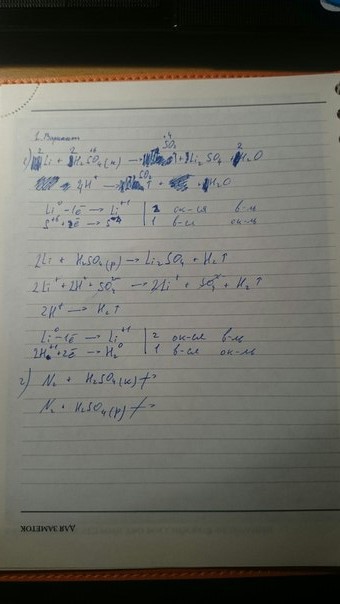 6 Вариант
1) 2Li + 2H₂SO₄(к) → SO₂↑ + Li₂SO₄ + 2H₂O
4H⁺ → SO₂↑ + H₂O
Li⁰ - 1ē → Li⁺¹ | 2 ок-ся в-ль
S⁺⁶ + 2ē → S⁺⁴ | 1 в-ся ок-ль
2Li + H₂SO₄(р) → Li₂SO₄ + H₂↑
2Li + 2H⁺ + SO₄ → 2Li⁺ + SO₄ + H₂↑
2H⁺ → H₂↑
Li⁰ - 1ē → Li⁺¹ | 2 ок-ся в-ль
2H⁺¹ + 2ē → H₂⁰ | 1 в-ся ок-ль
2) N₂ + H₂SO₄(к) ↛
N₂ + H₂SO₄(р) ↛
ДЛЯ ЗАМЕТОК